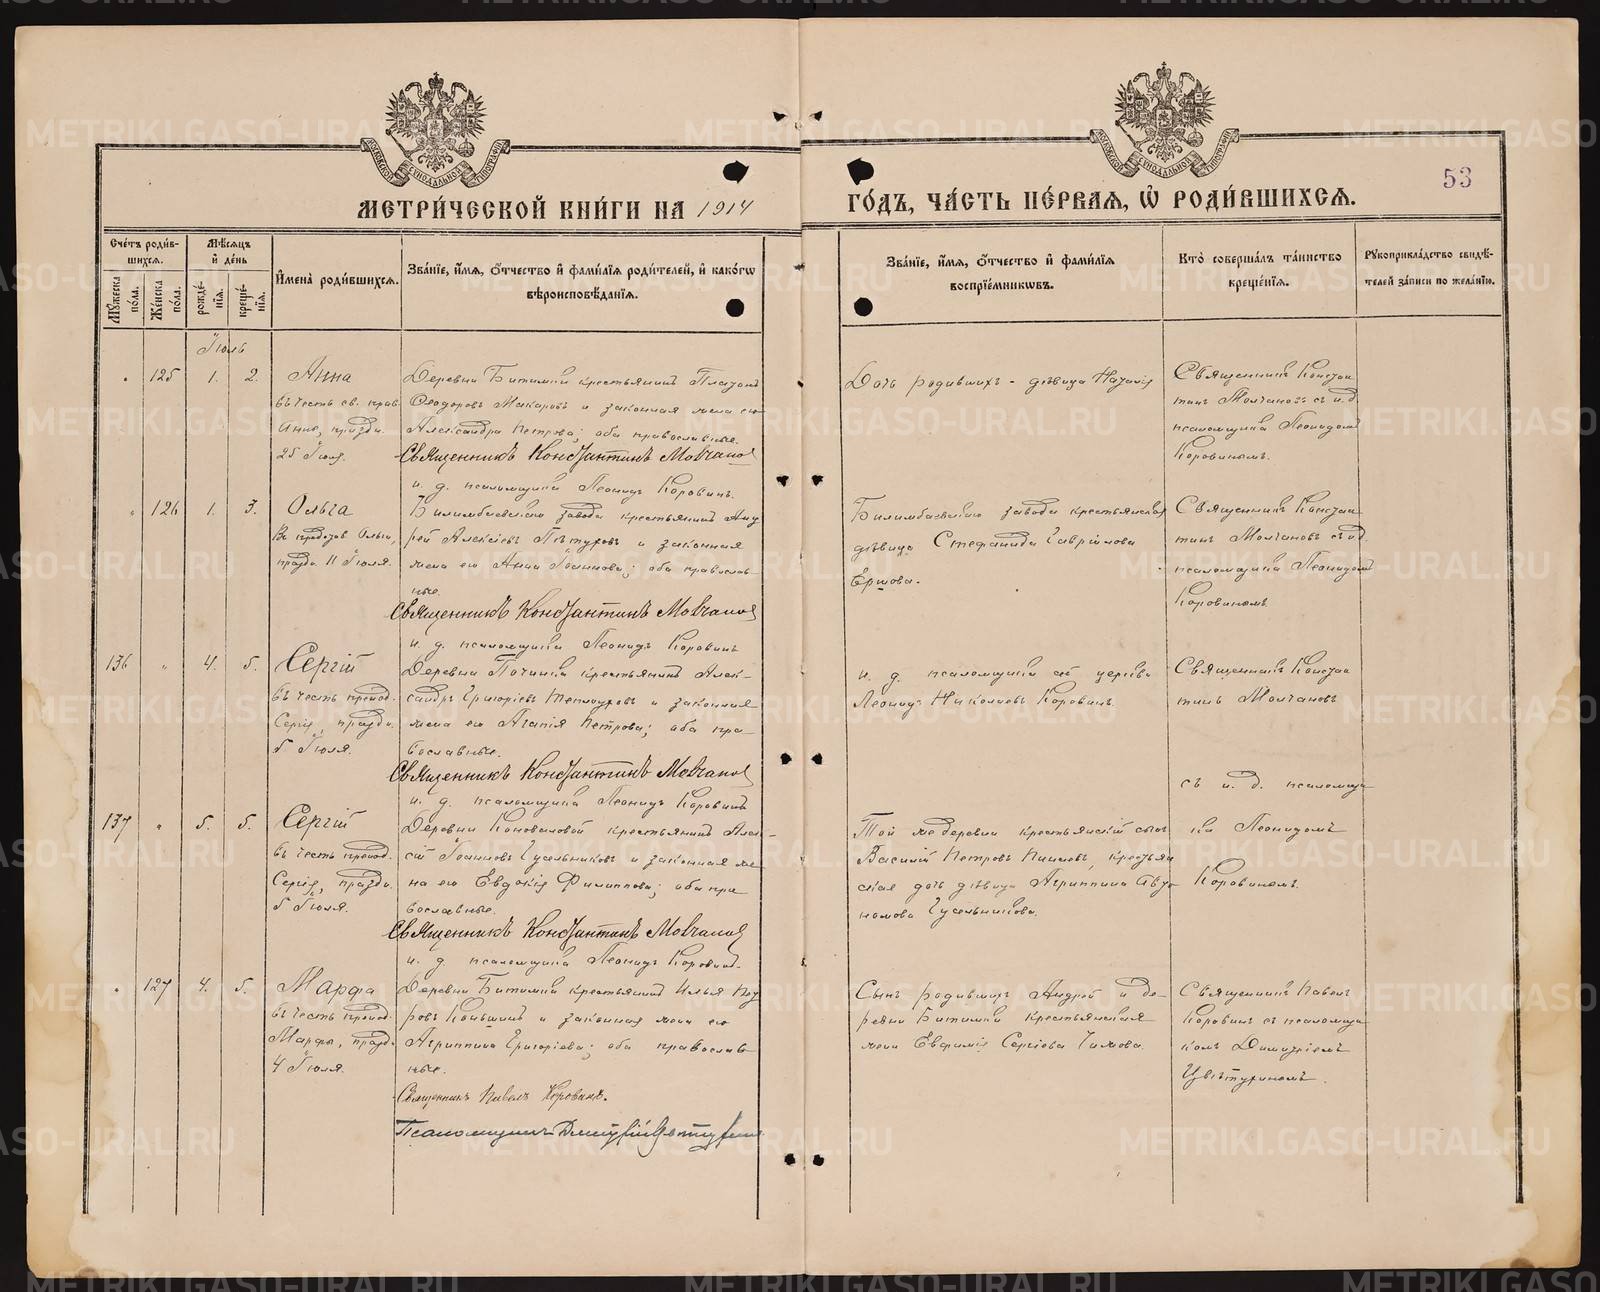 53
МЕТРИ́ЧЕСКОЙ КНИ́ГИ НА 1914 ГО́ДЪ, ЧА́СТЬ ПЕ́РВАЯ, Ѡ РОДИ́ВШИХСЯ.
Сче́тъ роди́в-
шихся.
Му́жеска по́ла.
Же́нска по́ла.
Мѣ́сяцъ
и де́нь
рожде́-
нія.
креще́-
нія.
И́мена роди́вшихся.
Зва́ніе, и́мя, о́тчество и фами́лія роди́телей, и како́гѡ
вѣроисповѣ́данія.
Зва́ніе, и́мя, о́тчество и фами́лія
воспріе́мникѡвъ.
Кто̀ соверша́лъ та́инство
креще́нія.
Рукоприкла́дство свидѣ́-
телей за́писи по жела́нію.
Іюль
125 1. 2.
Анна
въ честь св. прав.
Анны, праздн.
25 Іюля.
Деревни Битимки крестьянинъ Платонъ
Ѳеодоровъ Макаровъ и законная жена его
Александра Петрова; оба православные.
Священникъ Константинъ Молчановъ
и. д. псаломщика Леонидъ Коровинъ.
Дочь родившихъ - дѣвица Наталія
Священникъ Констан
тинъ Молчановъ съ и. д.
псаломщика Леонидомъ
Коровинымъ.
126 1. 3.
Ольга
Ольги,
празд. 11 Іюля.
Билимбаевскаго завода крестьянинъ Анд
рей Алексіевъ и законная
жена его Анна Іоаннова; оба православ-
ные.
Священникъ Константинъ Молчановъ
и. д. псаломщика Леонидъ Коровинъ
Билимбаевскаго завода крестьянская
дѣвица Стефанида Гавріилова
Ершова.
Священникъ Констан
тинъ Молчановъ съ и.д.
псаломщика Леонидомъ
Коровинымъ
136 „ 4. 5.
Сергій
въ честь препод.
Сергія, праздн.
5 Іюля.
Деревни Починка крестьянинъ Алек-
сандръ Григоріевъ и законная
жена его Агапія Петрова; оба пра-
вославные.
Священникъ Константинъ Молчановъ
и. д. псаломщика Леонидъ Коровинъ
и. д. псаломщика сей церкви
Леонидъ Николаевъ Коровинъ.
Священникъ Констан
тинъ Молчановъ
съ и. д. псаломщи
ка Леонидомъ
Коровинымъ.
137 „ 5. 5.
Сергій
въ честь препод.
Сергія, праздн.
5 Іюля.
Деревни Коноваловой крестьянинъ Алек-
сій Іоанновъ Гусельниковъ и законная же
на его Евдокія Филиппова; оба пра
вославные.
Священникъ Константинъ Молчановъ
и. д. псаломщика Леонидъ Коровинъ.
Той же деревни крестьянскій сынъ
Василій Петровъ крестьян
ская дочь дѣвица Агриппина Авто
номова Гусельникова.
127 4. 5.
Марѳа
въ честь препод.
Марѳы, празд.
4 Іюля.
Деревни Битимки крестьянинъ Илья Пет
ровъ и законная жена его
Агриппина Григоріева; оба православ
ные.
Священникъ Павелъ Коровинъ.
Псаломщикъ Димитрій
Сынъ родившихъ Андрей и де-
ревни Битимки крестьянская
жена Евфимія Сергіева
Священникъ Павелъ
Коровинъ съ псаломщи
комъ Димитріемъ